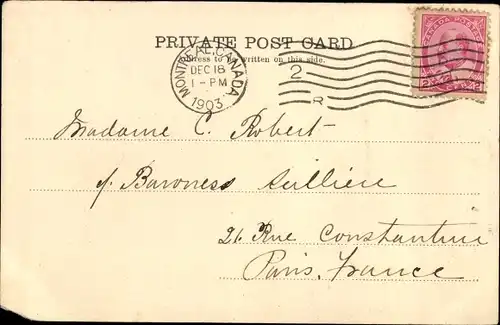 PRIVATE POST CARD
Address to be written on this side.
MONTREAL, CANADA
DEC 18
1-PM
1903
2
R
CANADA POSTAGE
2 2
Madame C. Robert
c/. Baroness Seillière
26 Rue Constantine
Paris, France